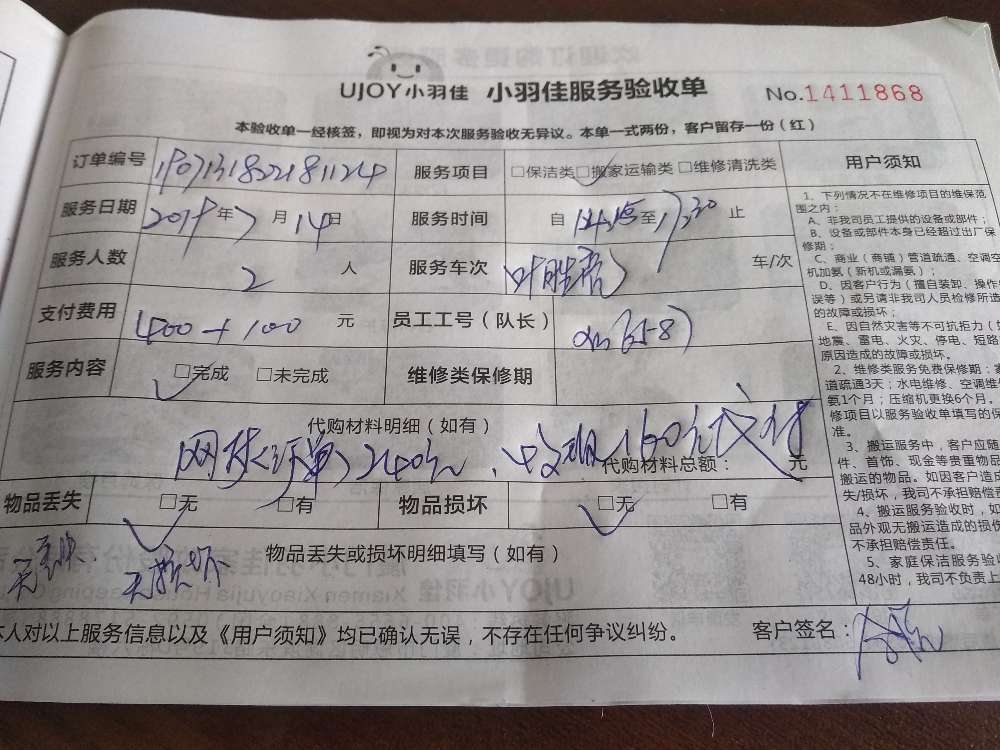 UJOY小羽佳 小羽佳服务验收单 No.1411868
本验收单一经核签，即视为对本次服务验收无异议。本单一式两份，客户留存一份（红）
订单编号 服务项目 □保洁类 □搬家运输类 □维修清洗类
服务日期 2019年7月14日 服务时间 自 至 止
服务人数 2 人 服务车次 叶胜亮 车/次
支付费用 400+100 元 员工工号（队长）
服务内容 □完成 □未完成 维修类保修期
代购材料明细（如有）
代购材料总额： 元
物品丢失 □无 □有 物品损坏 □无 □有
无损坏
物品丢失或损坏明细填写（如有）
本人对以上服务信息以及《用户须知》均已确认无误，不存在任何争议纠纷。 客户签名：
用户须知
1、下列情况不在维修项目的维保范
围之内：
A、非我司员工提供的设备或部件；
B、设备或部件本身已经超过出厂保
修期；
C、商业（商铺）管道疏通、空调空
机加氨（新机或漏氨）；
D、因客户行为（擅自装卸、操作
误等）或另请非我司人员检修所造
的故障或损坏；
E、因自然灾害等不可抗拒力（
地震、雷电、火灾、停电、短路
原因造成的故障或损坏。
2、维修类服务免费保修期：
道疏通3天；水电维修、空调维
氨1个月；压缩机更换6个月。
修项目以服务验收单填写的保
准。
3、搬运服务中，客户应随
件、首饰、现金等贵重物品
搬运的物品。如因客户造成
失/损坏，我司不承担赔偿
4、搬运服务验收时，如
品外观无搬运造成的损伤
不承担赔偿责任。
5、家庭保洁服务验收
48小时，我司不负责上